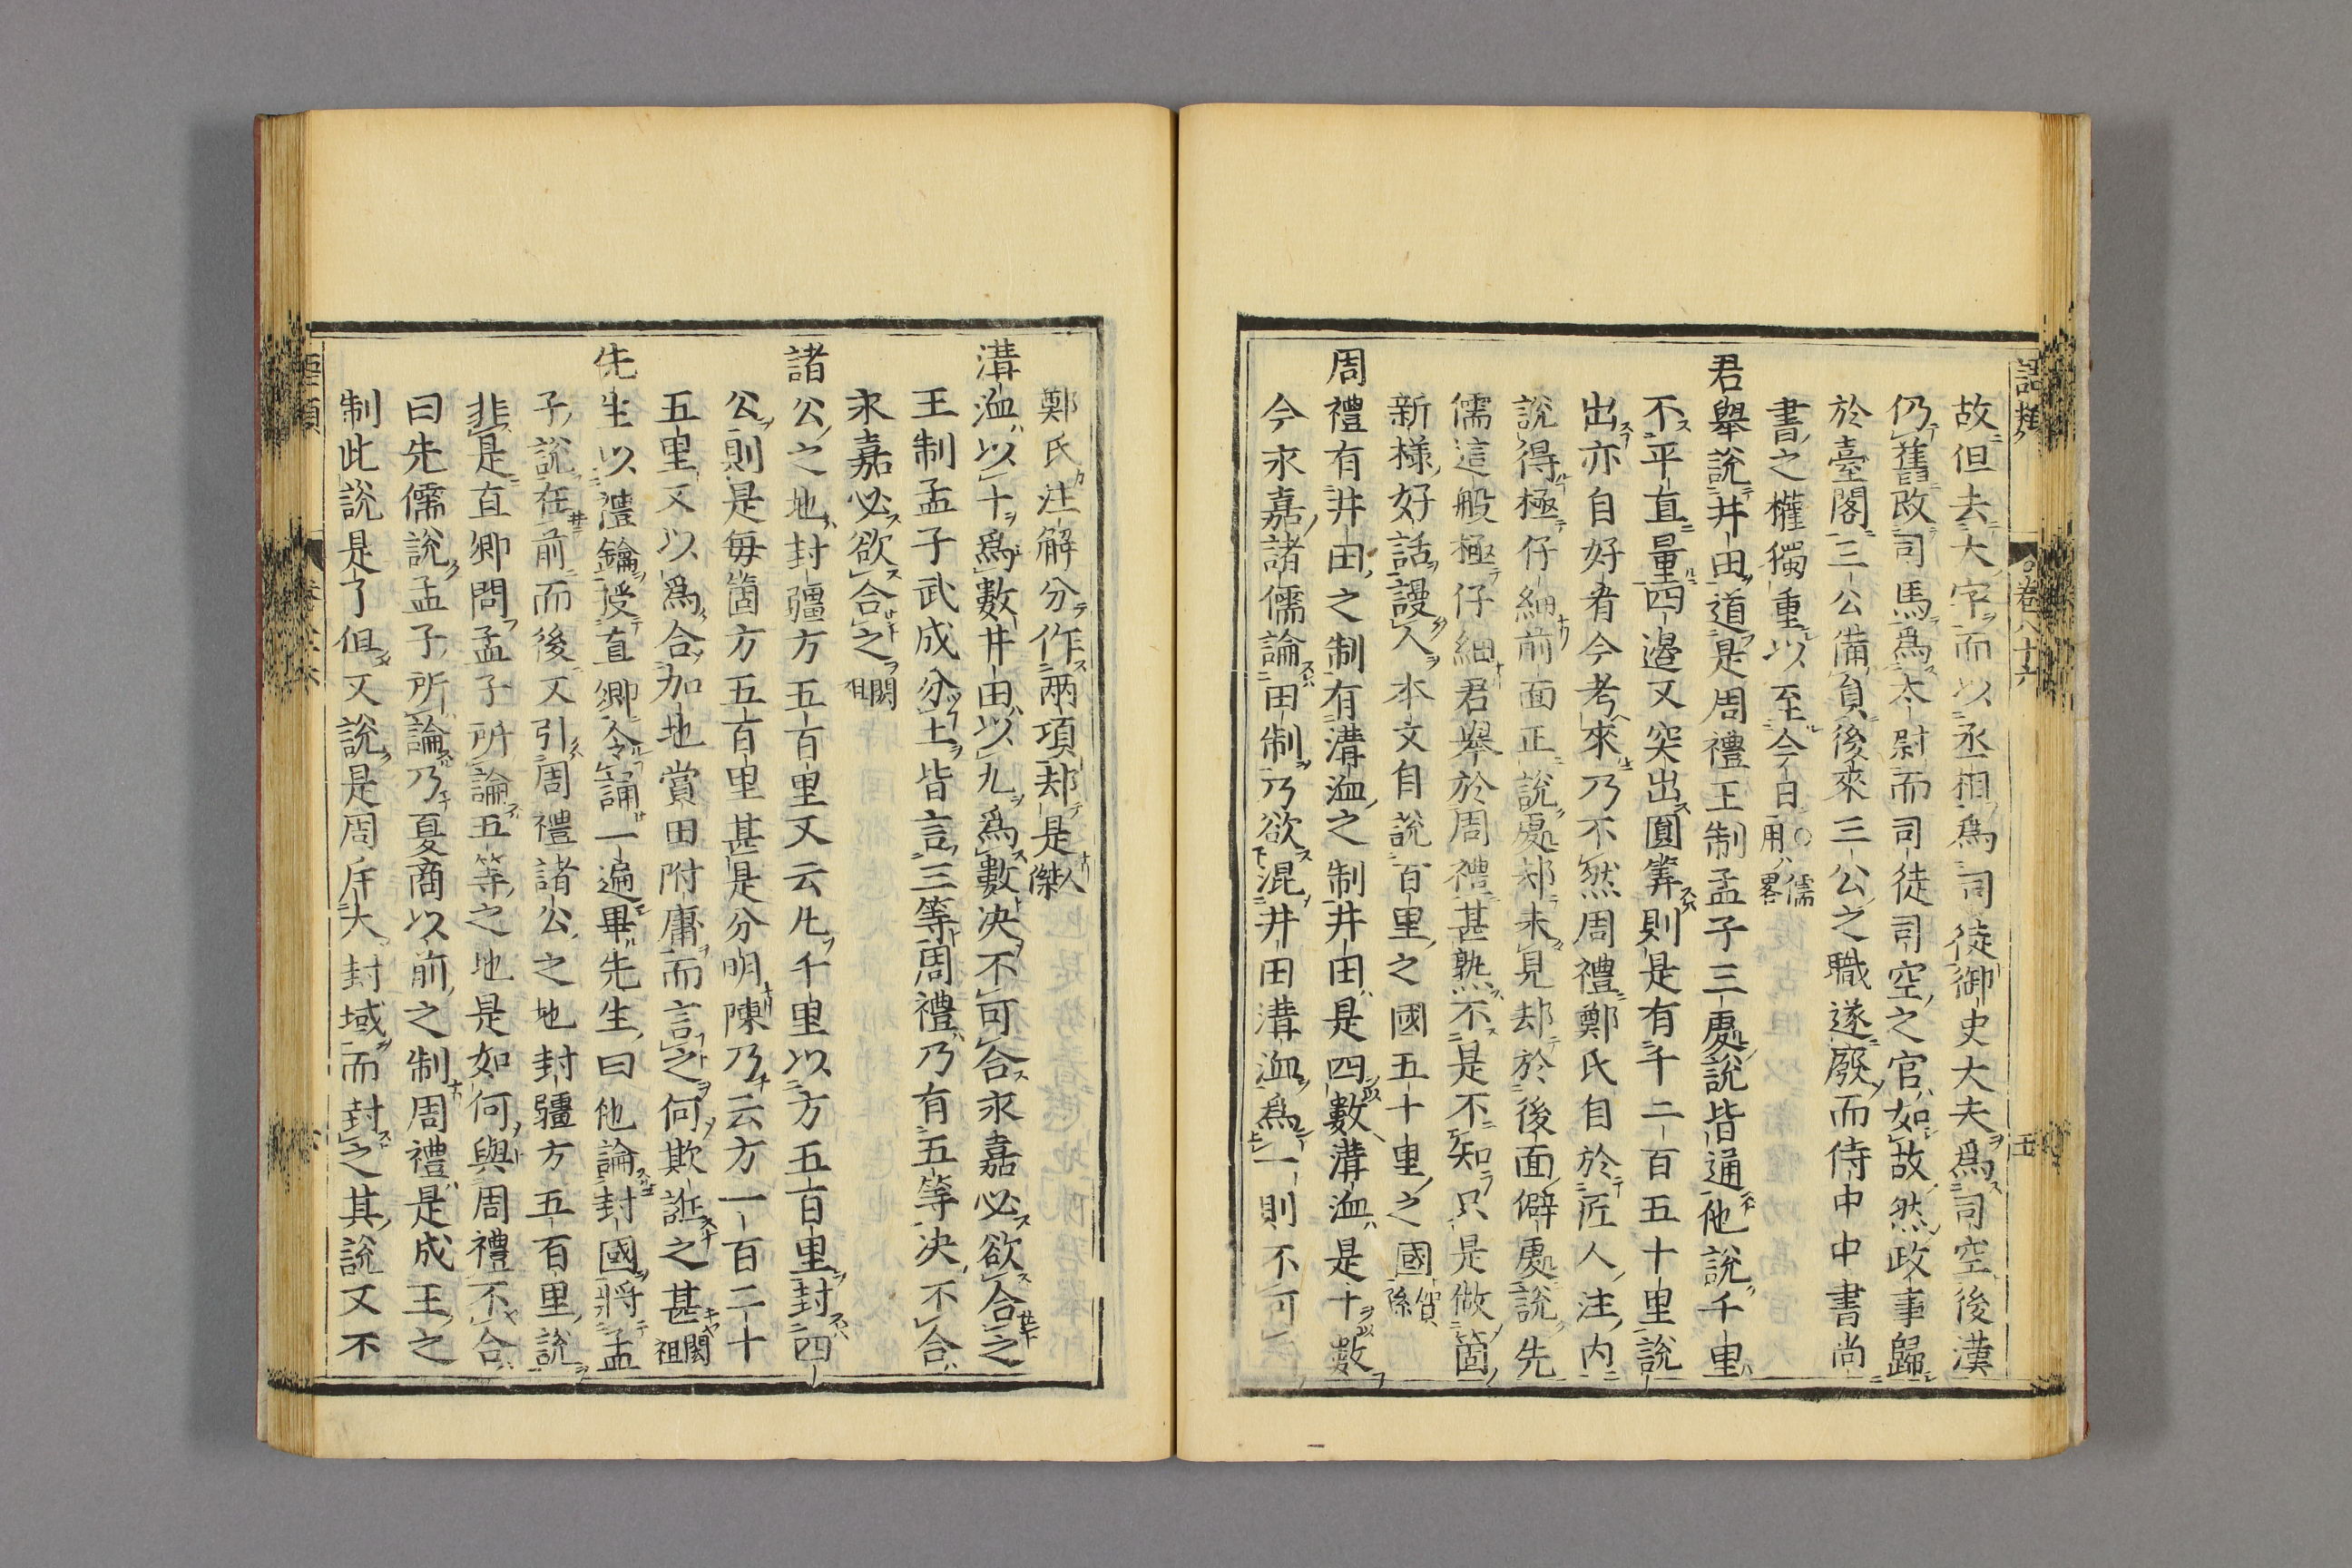 故但去大字而以丞相爲司徒御史大夫爲司空後漢
仍舊改司馬爲太尉而司徒司空之官如故然政事歸
於臺閣三公備員後來三公之職遂廢而侍中中書尚
書之權獨重以至今日○儒用畧
君舉說井田道是周禮王制孟子三處說皆通他說千里
不平直量四邊又突出圓筭則是有千二百五十里說
出亦自好看今考來乃不然周禮鄭氏自於匠人注内
說得極仔細前面正說處却未見却於後面僻處說先
儒這般極仔細君舉於周禮甚熟不是不知只是做箇
新樣好話謾人本文自說百里之國五十里之國賀孫
周禮有井田之制有溝洫之制井田是四數溝洫是十數
今永嘉諸儒論田制乃欲混井田溝洫爲一則不可
鄭氏注解分作兩項却是人傑
溝洫以十爲數井田以九爲數决不可合永嘉必欲合之
王制孟子武成分土皆言三等周禮乃有五等决不合
永嘉必欲合之閎祖
諸公之地封疆方五百里又云凡千里以方五百里封四
公則是每箇方五百里甚是分明陳乃云方一百二十
五里又以爲合加地賞田附庸而言之何欺誑之甚閎祖
先生以禮鑰授直卿令誦一遍畢先生曰他論封國將孟
子說在前而後又引周禮諸公之地封疆方五百里說
非是直卿問孟子所論五等之地是如何與周禮不合
曰先儒說孟子所論乃夏商以前之制周禮是成王之
制此說是了但又說是周斥大封域而封之其說又不
語類 卷八十六 五